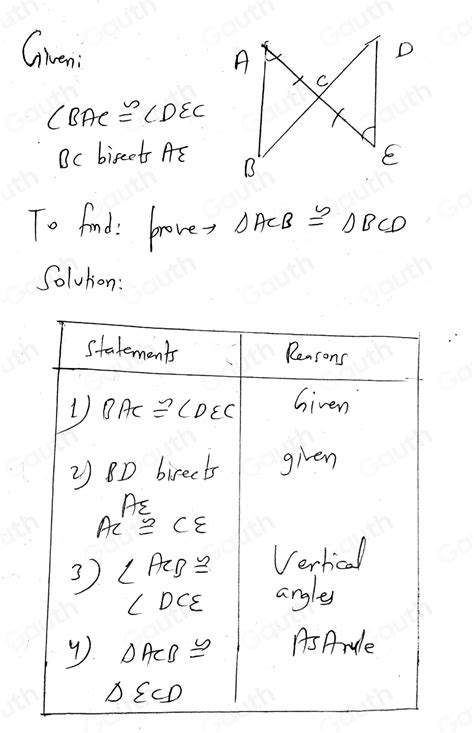 Given:
∠BAC ≅ ∠DEC
BC bisects AE
A
D
C
B
E
To find: prove → ΔACB ≅ ΔBCD
Solution:
Statements
Reasons
1) BAC ≅ ∠DEC
Given
2) BD bisects
given
AE
AC ≅ CE
3) ∠ACB ≅
Vertical
∠DCE
angles
4) ΔACB ≅
ASA rule
ΔECD